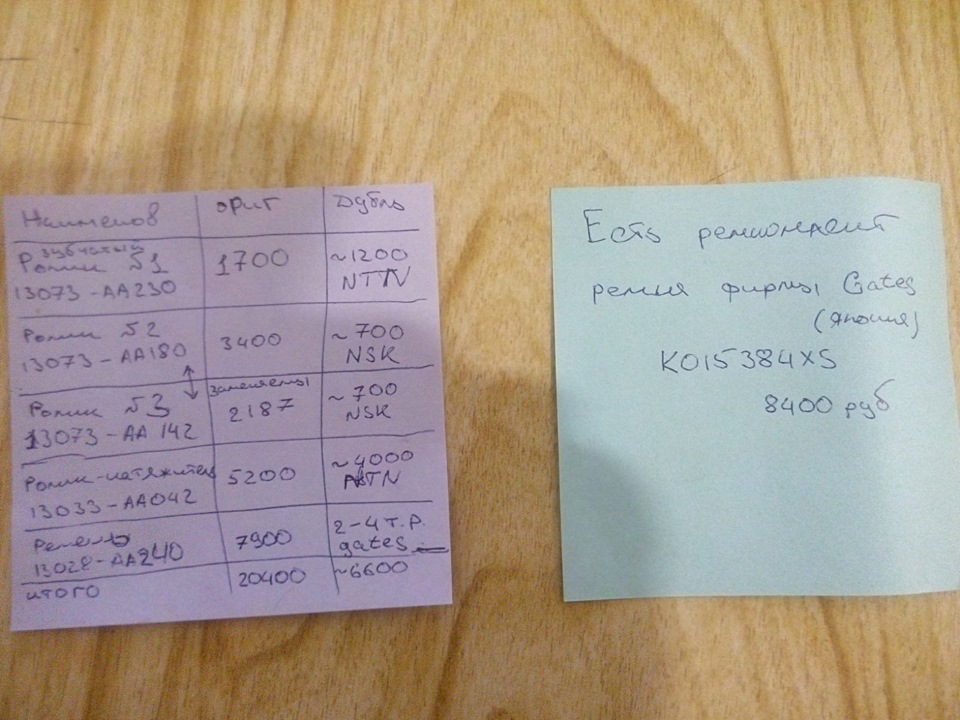 Наименов ориг Дубль
зубчатый
Ролик №1 1700 ~1200
13073-AA230 NTN
Ролик №2 3400 ~700
13073-AA180 NSK
заменяемы
Ролик №3 2187 ~700
13073-AA142 NSK
Ролик-натяжитель 5200 ~4000
13033-AA042 NTN
Ремень 7900 2-4 т.р.
13028-AA240 gates
итого 20400 ~6600
Есть ремкомплект
ремня фирмы Gates
(Япония)
K015384XS
8400 руб